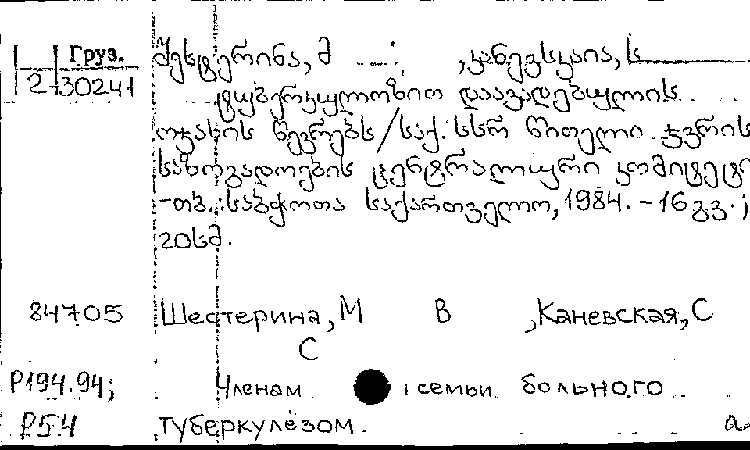 Груз.
2-30241
შესტერინა, მ ,კანევსკაია, ს
ტუბერკულოზით დაავადებულის
ოჯახის წევრებს/საქ. სსრ წითელი ჯვრის
საზოგადოების ცენტრალური კომიტეტი
-თბ.:საბჭოთა საქართველო, 1984. - 16 გვ.;
20სმ.
84705 Шестерина, М В ,Каневская, С
С
Р194.94; Членам семьи больного
Р54 туберкулёзом.